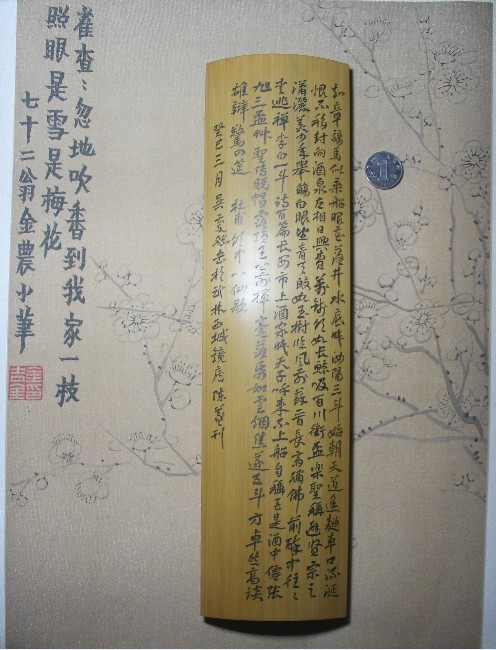 知章騎馬似乘船眼花落井水底眠汝陽三斗始朝天道逢麯車口流涎
恨不移封向酒泉左相日興費萬錢飲如長鯨吸百川銜盃樂聖稱避賢宗之
瀟灑美少年舉觴白眼望青天皎如玉樹臨風前蘇晉長齋繡佛前醉中往〻
愛逃禪李白一斗詩百篇長安市上酒家眠天子呼来不上船自稱臣是酒中僊張
旭三盃草聖传脱帽露頂王公前揮毫落紙如雲烟焦遂五斗方卓然高談
雄辯驚四筵 杜甫飲中八仙歌
癸巳三月 於武林西城 陳 刊
雀查〻忽地吹香到我家一枝
照眼是雪是梅花
七十二翁金農少筆